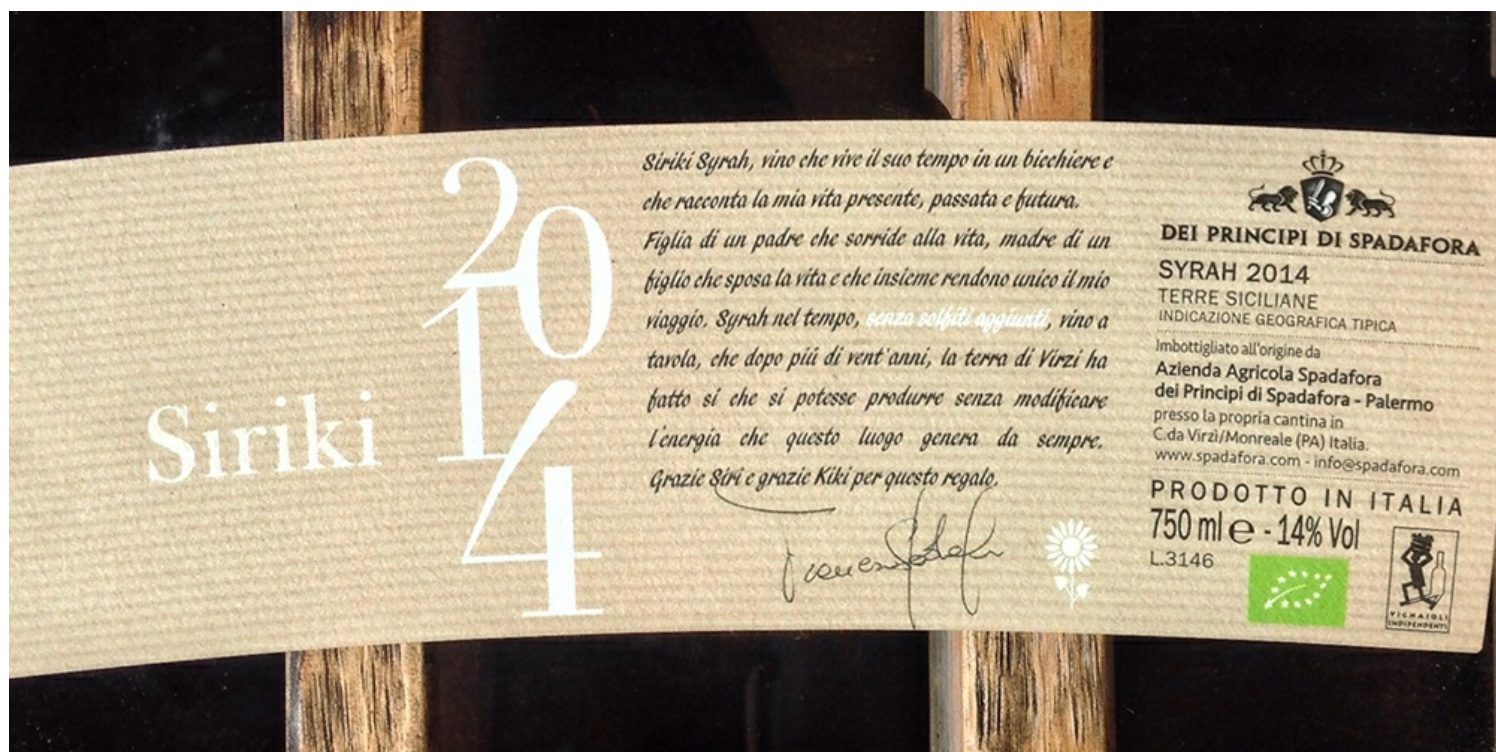 Siriki
2014
Siriki Syrah, vino che vive il suo tempo in un bicchiere e
che racconta la mia vita presente, passata e futura.
Figlia di un padre che sorride alla vita, madre di un
figlio che sposa la vita e che insieme rendono unico il mio
viaggio. Syrah nel tempo, senza solfiti aggiunti, vino a
tavola, che dopo più di vent'anni, la terra di Virzì ha
fatto sì che si potesse produrre senza modificare
l'energia che questo luogo genera da sempre.
Grazie Siri e grazie Kiki per questo regalo.
DEI PRINCIPI DI SPADAFORA
SYRAH 2014
TERRE SICILIANE
INDICAZIONE GEOGRAFICA TIPICA
Imbottigliato all'origine da
Azienda Agricola Spadafora
dei Principi di Spadafora - Palermo
presso la propria cantina in
C.da Virzì/Monreale (PA) Italia.
www.spadafora.com - info@spadafora.com
PRODOTTO IN ITALIA
750 ml e - 14% Vol
L.3146
VIGNAIOLI
INDIPENDENTI